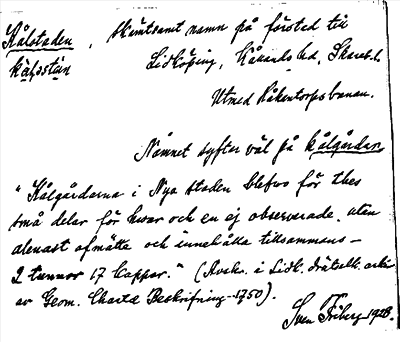 Kålstaden, skämtsamt namn på förstad till
kå̄lstán Lidköping, Kållands hd, Skarab. l.
Utmed Håkentorpsbanan.
Namnet syftar väl på kålgårdar
"Kålgårdarna i Nya staden blefvo för thes
små delar för husar och en ej observerade, utan
allenast afmätte och innehålla tillsammans –
2 tunnor 17 kappor." (Avskr. i Lidk. drätselk. arkiv
av Geom. Charta Beskrifning 1750).
Sven Friberg 1928.